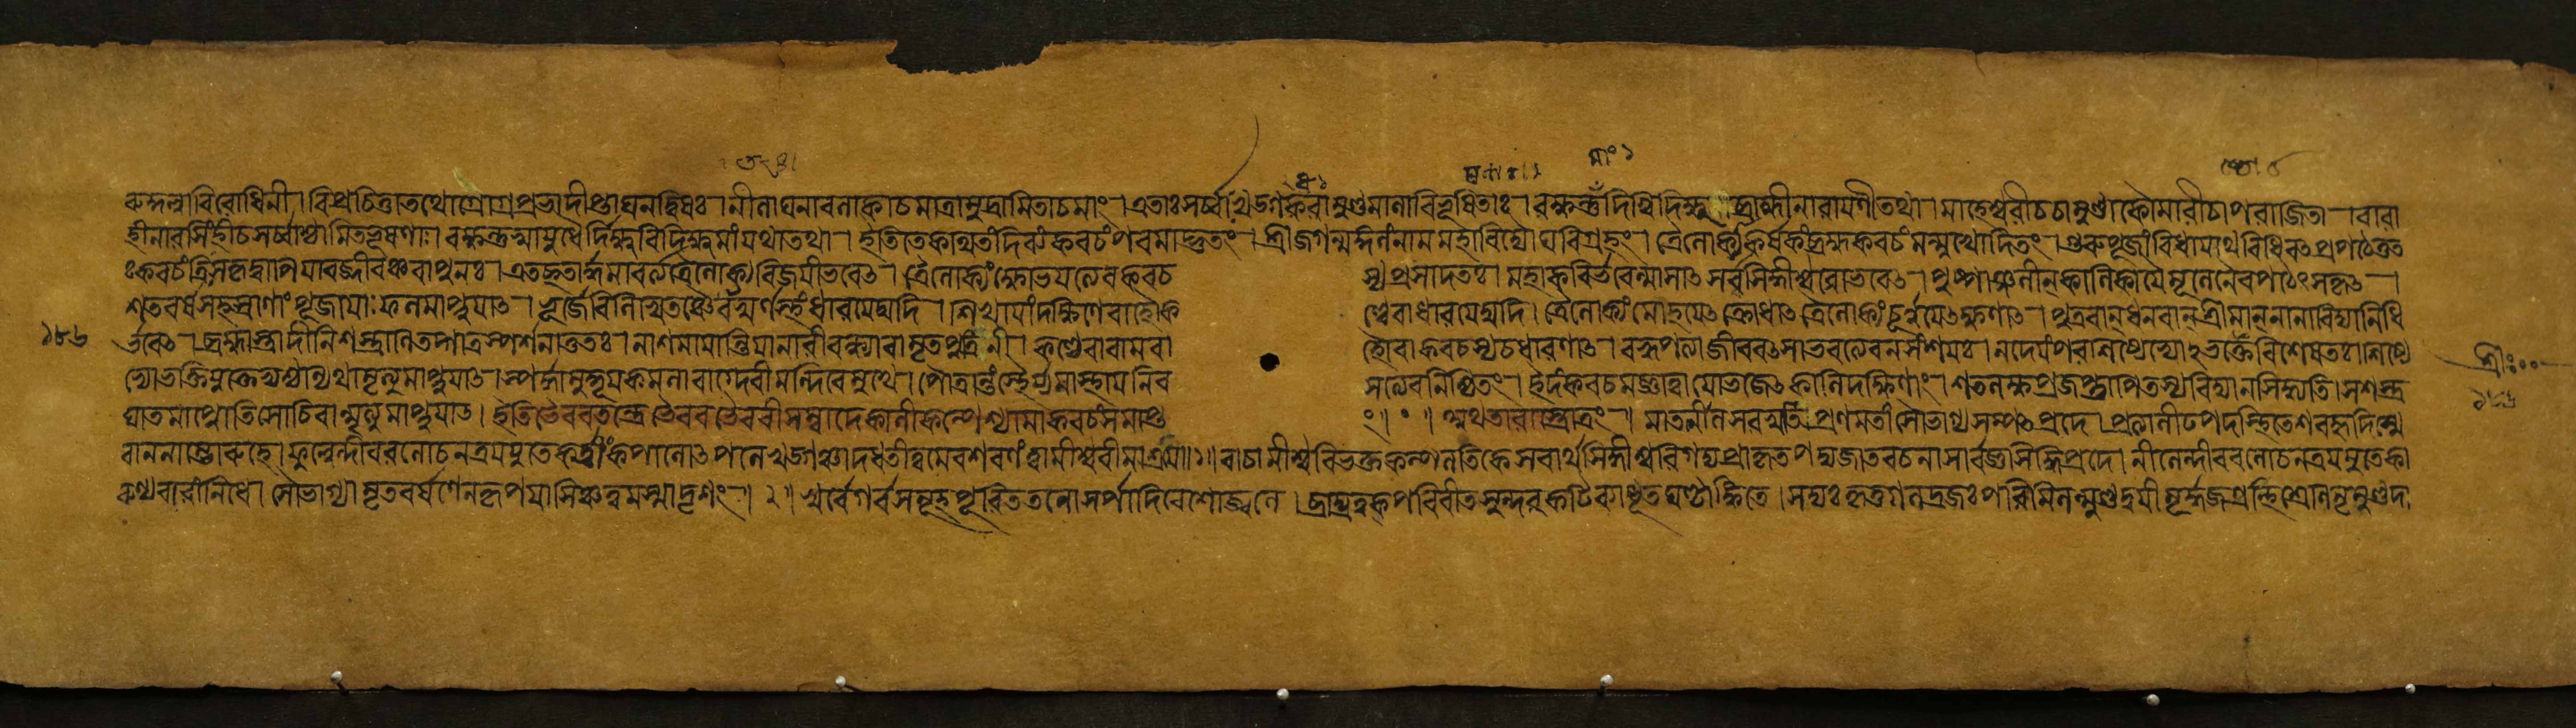 রুকুল্লাবিরোধিনী। বিপ্রচিত্তাতথোগ্রোগ্রপ্রভাদীপ্তাঘনত্বিষঃ। নীলাঘনাবলাকাচমাত্রামুদ্রামিতাচমাং। এতাঃসর্ব্বাঃখড়্গকরামুণ্ডমালাবিভূষিতাঃ। রক্ষন্তু দিগ্বিদিক্ষু ব্রাহ্মীনারায়ণীতথা। মাহেশ্বরীচচামুণ্ডাকৌমারীচাপরাজিতা। বারা
হীনারসিংহীচসর্ব্বাশ্চামিতভূষণাঃ। রক্ষন্তুস্বায়ুধৈর্দিক্ষুবিদিক্ষুমাংযথাতথা। ইতিতেকথিতংদিব্যংকবচংপরমাদ্ভুতং। শ্রীজগন্মঙ্গলংনামমহাবিদ্যৌঘবিগ্রহং। ত্রৈলোক্যাকর্ষকংব্রহ্মকবচংমন্মুখোদিতং। গুরুপূজাংবিধায়াথবিধিবৎপ্রপঠেত্তত
ঃকবচংত্রিঃসকৃদ্বাপিযাবজ্জীবঞ্চবাপুনঃ। এতচ্ছতার্দ্ধমাবর্ত্যত্রৈলোক্যবিজয়ীভবেৎ। ত্রৈলোক্যংক্ষোভয়ত্যেবকবচ স্যপ্রসাদতঃ। মহাকবির্ভবেন্মাসাৎসর্বসিদ্ধীশ্বরোভবেৎ। পুষ্পাঞ্জলীন্কালিকায়ৈমূলেনৈবপঠেৎসকৃৎ।
শতবর্ষসহস্রাণাংপূজায়াঃফলমাপ্নুয়াৎ। ভূর্জেবিলিখিতঞ্চৈবস্বর্ণস্থংধারয়েদ্যদি। শিখায়াংদক্ষিণেবাহৌক ণ্ঠেবাধারয়েদ্যদি। ত্রৈলোক্যংমোহয়েৎক্রোধাৎত্রৈলোক্যংচূর্ণয়েৎক্ষণাৎ। পুত্রবান্ধনবান্শ্রীমান্নানাবিদ্যানিধি
১৮৬ র্ভবেৎ। ব্রহ্মাস্ত্রাদীনিশস্ত্রাণিতদ্গাত্রস্পর্শনাত্ততঃ। নাশমায়ান্তিযানারীবন্ধ্যাবামৃতপুত্রিণী। কণ্ঠেবাবামবা হৌবাকবচস্যচধারণাৎ। বহ্বপত্যাজীববৎসাভবত্যেবনসংশয়ঃ। নদেয়ংপরশিষ্যেভ্যোঽভক্তেভ্যোবিশেষতঃ। শিষ্যে শ্রীঃ
ভ্যোভক্তিযুক্তেভ্যশ্চান্যথামৃত্যুমাপ্নুয়াৎ। স্পর্দ্ধামুদ্ধূয়কমলাবাগ্দেবীমন্দিরেমুখে। পৌত্রান্তংস্থৈর্য্যমাস্থায়নিব সত্যেবনিশ্চিতং। ইদংকবচমজ্ঞাত্বাযোভজেৎকালিদক্ষিণাং। শতলক্ষপ্রজপ্ত্বাপিতস্যবিদ্যানসিদ্ধ্যতি। সশস্ত্র
ঘাতমাপ্নোতিসোচিরান্মৃত্যুমাপ্নুয়াৎ। ইতিভৈরবতন্ত্রেভৈরবভৈরবীসম্বাদেকালীকল্পেশ্যামাকবচংসমাপ্ত ং॥ ॥ অথতারাস্তোত্রং॥ মাতর্নীলসরস্বতিপ্রণমতাংসৌভাগ্যসম্পৎপ্রদে। প্রত্যালীঢপদস্থিতেশবহৃদিস্মে
রাননাম্ভোরুহে। ফুল্লেন্দীবরলোচনত্রয়যুতেকর্ত্রীংকপালোৎপলেখড়্গঞ্চাদধতীত্বমেবশরণংত্বামীশ্বরীমাশ্রয়ে॥১॥ বাচামীশ্বরিভক্তকল্পলতিকেসর্বার্থসিদ্ধীশ্বরিগদ্যপ্রাকৃতপদ্যজাতরচনাসার্বজ্ঞসিদ্ধিপ্রদে। নীলেন্দীবরলোচনত্রয়যুতেকা
রুণ্যবারাংনিধে। সৌভাগ্যামৃতবর্ষণেনকৃপয়াসিঞ্চত্বমস্মাদৃশং॥২॥ খর্বেগর্বসমূহপূরিততনোসর্পাদিবেশোজ্জ্বলে। ব্যাঘ্রত্বক্পরিবীতসুন্দরকটিব্যাধূতঘণ্টাঙ্কিতে। সদ্যঃকৃত্তগলদ্রজঃপরিমিলন্মুণ্ডদ্বয়ীমূর্দ্ধজগ্রন্থিশ্রেণিনৃমুণ্ডদা